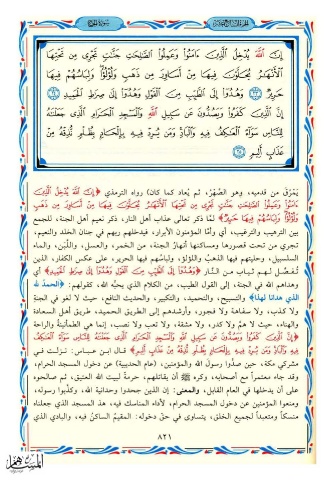 إِنَّ اللَّهَ يُدْخِلُ الَّذِينَ ءَامَنُوا وَعَمِلُوا الصَّالِحَاتِ جَنَّاتٍ تَجْرِي مِن تَحْتِهَا
الْأَنْهَارُ يُحَلَّوْنَ فِيهَا مِنْ أَسَاوِرَ مِن ذَهَبٍ وَلُؤْلُؤًا وَلِبَاسُهُمْ فِيهَا
حَرِيرٌ ٢٣ وَهُدُوا إِلَى الطَّيِّبِ مِنَ الْقَوْلِ وَهُدُوا إِلَى صِرَاطِ الْحَمِيدِ ٢٤
إِنَّ الَّذِينَ كَفَرُوا وَيَصُدُّونَ عَن سَبِيلِ اللَّهِ وَالْمَسْجِدِ الْحَرَامِ الَّذِي جَعَلْنَاهُ
لِلنَّاسِ سَوَاءً الْعَاكِفُ فِيهِ وَالْبَادِ وَمَن يُرِدْ فِيهِ بِإِلْحَادٍ بِظُلْمٍ نُذِقْهُ مِنْ
عَذَابٍ أَلِيمٍ ٢٥
يَمْرُقَ من قدميه، وهو الصَّهْرُ، ثم يُعاد كما كان) رواه الترمذي ﴿إِنَّ اللَّهَ يُدْخِلُ الَّذِينَ
ءَامَنُوا وَعَمِلُوا الصَّالِحَاتِ جَنَّاتٍ تَجْرِي مِن تَحْتِهَا الْأَنْهَارُ يُحَلَّوْنَ فِيهَا مِنْ أَسَاوِرَ مِن ذَهَبٍ
وَلُؤْلُؤًا وَلِبَاسُهُمْ فِيهَا حَرِيرٌ﴾ لمَّا ذكر تعالى عذاب أهل النار، ذكر نعيم أهل الجنة، للجمع
بين الترهيب والترغيب، أي وأمَّا المؤمنون الأبرار، فيدخلهم ربهم في جنان الخلد والنعيم،
تجري من تحت قصورها ومساكنها أنهارُ الجنة، من الخمر، والعسل، واللَّبن، والماء
السلسبيل، وحليتهم فيها الذهبُ واللؤلؤ، ولباسُهم فيها الحرير، على عكس الكفار، الذين
تُفصَّل لهم ثياب من النَّار ﴿وَهُدُوا إِلَى الطَّيِّبِ مِنَ الْقَوْلِ وَهُدُوا إِلَى صِرَاطِ الْحَمِيدِ﴾ أي
وهداهم الله في الجنة، إلى القول الطيب، من الكلام الذي يحبُّه الله، كقولهم: ﴿الحمدُ لله
الذي هدانا لهذا﴾ والتسبيح، والتحميد، والتكبير، والحديث النافع، حيث لا لغو في الجنة
ولا كذب، ولا سفاهة ولا فجور، وأرشدهم إلى الطريق الحميد، طريق أهل السعادة
والهناء، حيث لا همَّ ولا كدر، ولا مشقة، ولا تعب ولا نصب، إنما هي الطمأنينة والراحة
﴿إِنَّ الَّذِينَ كَفَرُوا وَيَصُدُّونَ عَن سَبِيلِ اللَّهِ وَالْمَسْجِدِ الْحَرَامِ الَّذِي جَعَلْنَاهُ لِلنَّاسِ سَوَاءً الْعَاكِفُ
فِيهِ وَالْبَادِ وَمَن يُرِدْ فِيهِ بِإِلْحَادٍ بِظُلْمٍ نُذِقْهُ مِنْ عَذَابٍ أَلِيمٍ﴾ قال ابن عباس: نزلت في
مشركي مكة، حين صدُّوا رسول الله والمؤمنين، (عام الحديبية) عن دخول المسجد الحرام،
وقد جاء معتمراً مع أصحابه، وكره ﷺ أن يقاتلهم، حرمةً لبيت الله العتيق، ثم صالحوه
على أن يدخلها في العام القابل، والمعنى: إن الذين جحدوا وحدانية الله، وكذَّبوا رسوله،
ومنعوا المؤمنين عن دخول المسجد الحرام، لأداء المناسك فيه، هذا المسجد الذي جعلناه
منسكاً ومتعبداً لجميع الخلق، يتساوى في حقِّ دخوله: المقيمُ الساكنُ فيه، والبادي الذي
٨٢١